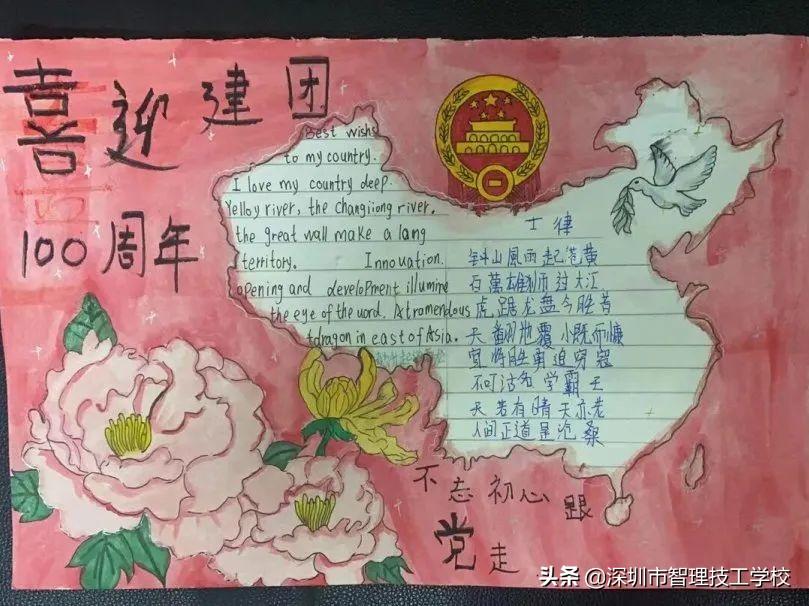 喜迎建团
100周年
Best wishs
to my country.
I love my country deep.
Yelloy river, the changjiong river,
the great wall make a lang
territory. Innovation.
opening and development illumine
the eye of the word. A tramendous
dragon in east of Asia.
七律
钟山風雨起苍黄
百萬雄师过大江
虎踞龙盘今胜昔
天翻地覆慨而慷
宜将剩勇追穷寇
不可沽名学霸王
天若有情天亦老
人间正道是沧桑
不忘初心跟
党走
头条 @深圳市智理技工学校